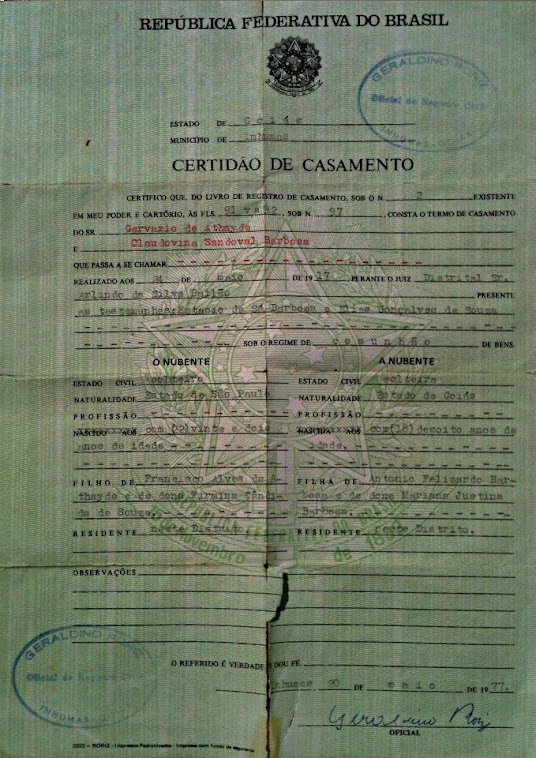 REPÚBLICA FEDERATIVA DO BRASIL
GERALDINO RORIZ
Oficial de Registro Civil
INHUMAS
ESTADO DE Goiás
MUNICÍPIO DE Inhumas
CERTIDÃO DE CASAMENTO
CERTIFICO QUE, DO LIVRO DE REGISTRO DE CASAMENTO, SOB O N. 2 EXISTENTE
EM MEU PODER E CARTÓRIO, ÀS FLS. 91 vaº92, SOB N. 97, CONSTA O TERMO DE CASAMENTO
DO SR. Gervazio de Athayde
E Claudovina Sandoval Barbosa
QUE PASSA A SE CHAMAR
REALIZADO AOS DE maio DE 1917 PERANTE O JUIZ Distrital Sr.
Arlindo da Silva PRESENTE
as testemunhas: de Sá Barbosa e Elias Gonçalves de Souza
SOB O REGIME DE comunhão DE BENS.
O NUBENTE
A NUBENTE
ESTADO CIVIL solteiro
ESTADO CIVIL solteira
NATURALIDADE Estado de São Paulo
NATURALIDADE Estado de Goiás
PROFISSÃO
PROFISSÃO
NASCIDO AOS com (22) vinte e dois
NASCIDO AOS com (18) dezoito anos de
anos de idade
idade.
FILHO DE Francisco Alves de A-
FILHA DE Antonio Felizardo Bar-
thayde e de dona Firmina Cândi-
bosa e de dona Mariana Justina
da de Souza.
Barbosa.
RESIDENTE neste Distrito.
RESIDENTE neste Distrito.
novembro de
OBSERVAÇÕES
GERALDINO RORIZ
Oficial de Registro Civil
INHUMAS
O REFERIDO É VERDADE E DOU FÉ
Inhumas 20 DE maio DE 1977.
Geraldino Roriz
OFICIAL
2222 – RORIZ - Impressos Padronizados - Impresso com fundo de segurança